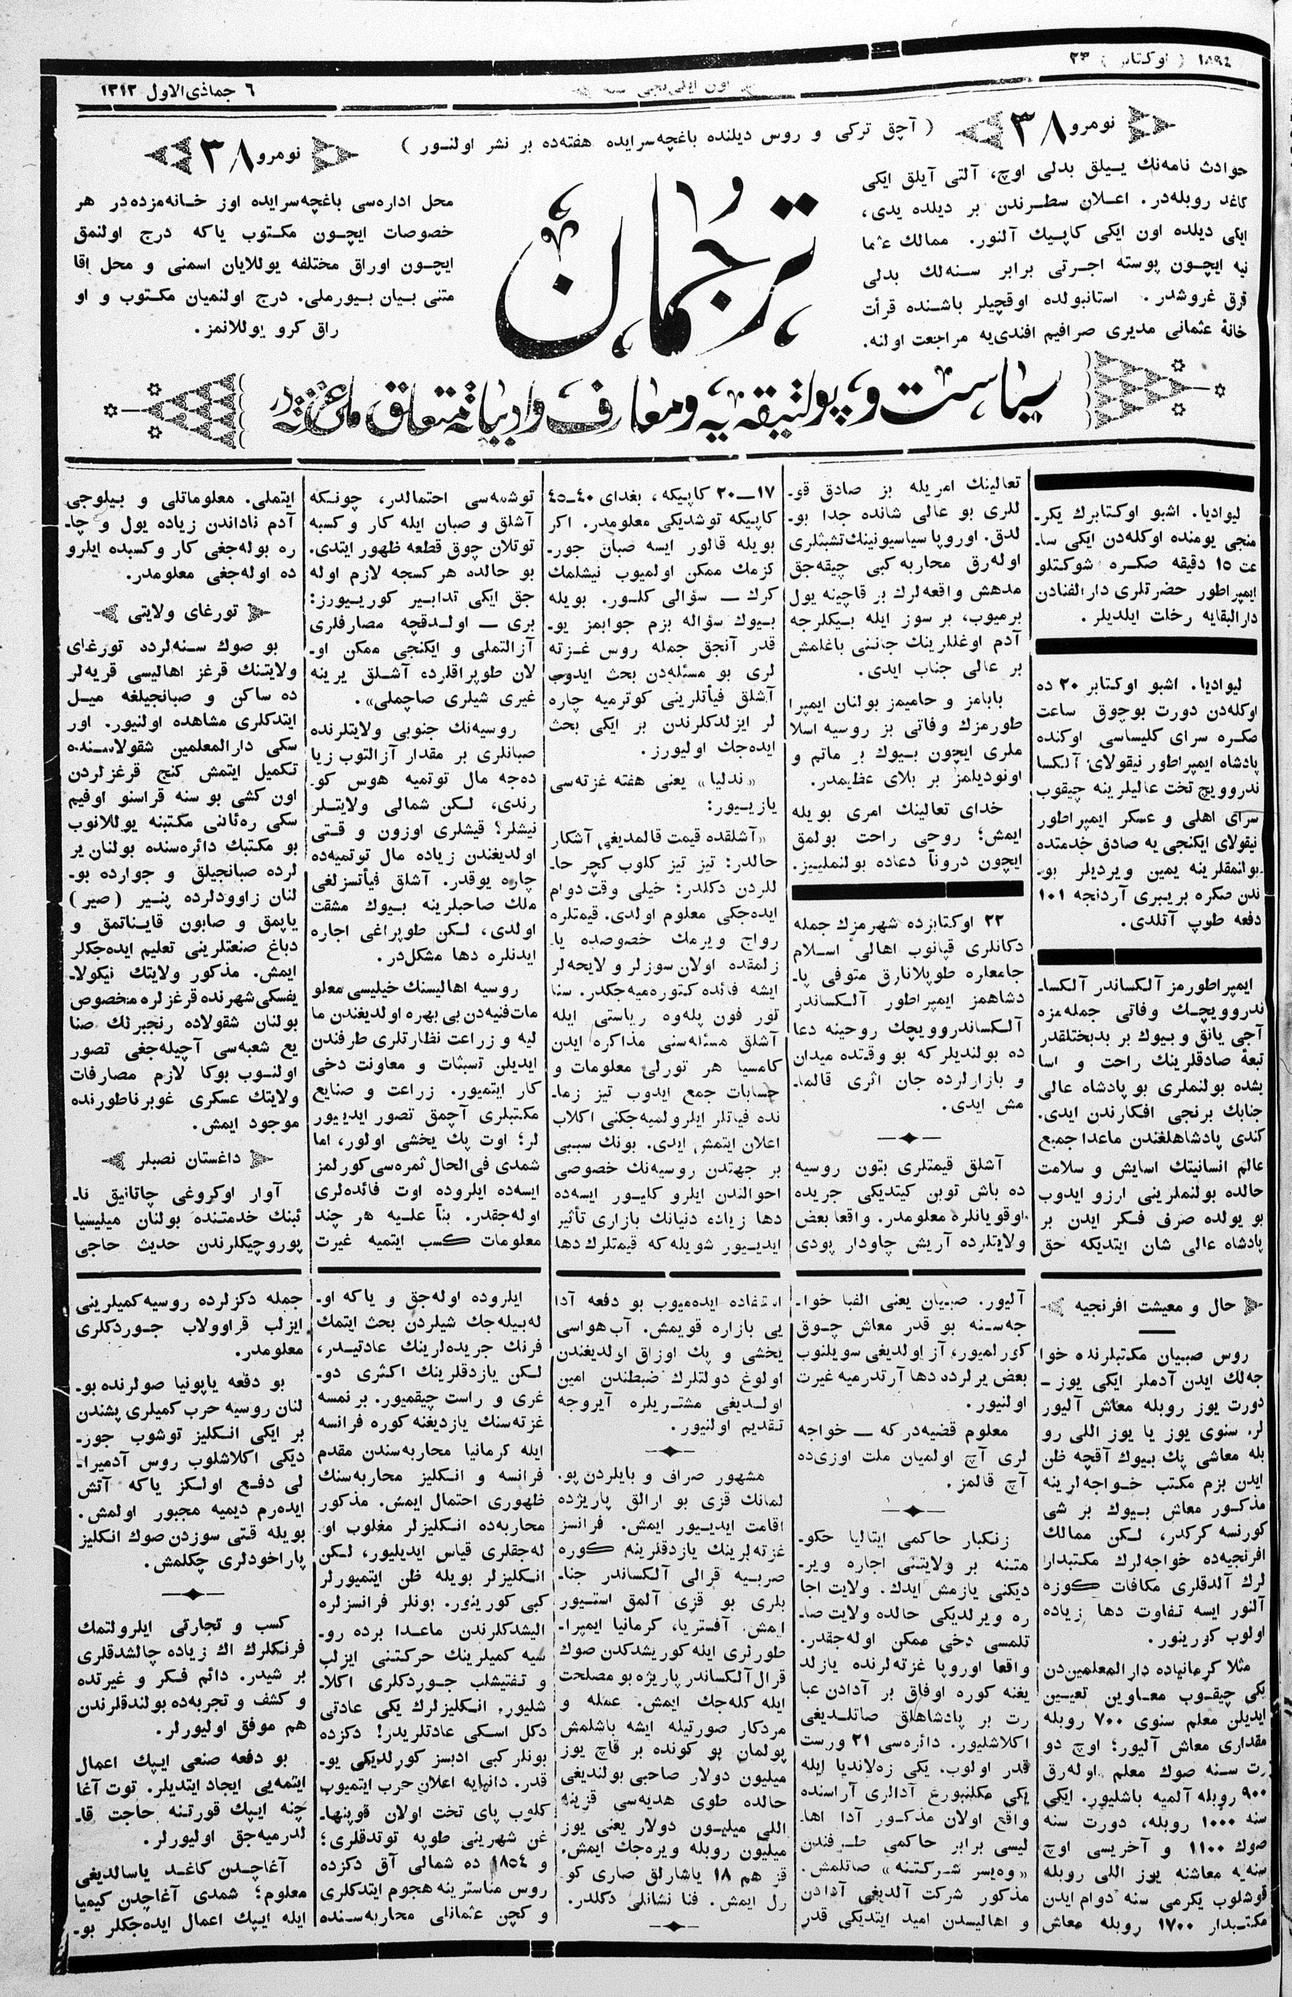 ١٨٩٤ ( اوكتابر ) ٢٣
اون ايكنجى سنه
٦ جماذى الاول ١٣١٢
نومرو ٣٨
( آچق تركى و روس ديلنده باغچه‌سرايده هفته‌ده بر نشر اولنور )
نومرو ٣٨
حوادث نامه‌نك ييلق بدلى اوچ، آلتى آيلق ايكى
كاغد روبله‌در. اعلان سطرندن بر ديلده يدى،
ايكى ديلده اون ايكى كاپيك آلنور. ممالك عثما
نيه ايچون پوسته اجرتى برابر سنه‌لك بدلى
قرق غروشدر. استانبولده اوقچيلر باشنده قرأت
خانهٔ عثمانى مديرى صرافيم افندى‌يه مراجعت اولنه.
ترجمان
محل اداره‌سى باغچه‌سرايده اوز خانه‌مزده‌در هر
خصوصات ايچون مكتوب ياكه درج اولنمق
ايچون اوراق مختلفه يوللايان اسمنى و محل اقا
متنى بيان بيورملى. درج اولنميان مكتوب و او
راق كرو يوللانمز.
سياست و پولتيقه يه و معارف و ادبياته متعلق غزته‌در
ليواديا. اشبو اوكتابرك يكر-
منجى يومنده اوكله‌دن ايكى سا-
عت ١٥ دقيقه صكره شوكتلو
ايمپراطور حضرتلرى دار الفنادن
دارالبقايه رخلت ايلديلر.
ليواديا. اشبو اوكتابر ٢٠ ده
اوكله‌دن دورت بوچوق ساعت
صكره سراى كليساسى اوكنده
پادشاه ايمپراطور نيقولاى آلكسا
ندروويچ تخت عاليلرينه چيقوب
سراى اهلى و عسكر ايمپراطور
نيقولاى ايكنجى يه صادق خدمتده
بوانمقلرينه يمين ويرديلر بو-
ندن صكره بريبرى آردنجه ١٠١
دفعه طوپ آتلدى.
ايمپراطورمز آلكساندر آلكسا-
ندروويچك وفاتى جمله‌مزه
آجى يانق و بيوك بر بدبختلقدر
تبعهٔ صادقلرينك راحت و اسا
يشده بولنملرى بو پادشاه عالى
جنابك برنجى افكارندن ايدى.
كندى پادشاهلغندن ماعدا جميع
عالم انسانيتك اسايش و سلامت
حالده بولنملرينى ارزو ايدوب
بو يولده صرف فكر ايدن بر
پادشاه عالى شان ايتديكه حق
تعالينك امريله بز صادق قو-
للرى بو عالى شانده جدا بو-
لدق. اوروپا سياسيونينك تشبثلرى
اوله‌رق محاربه كبى چيقه‌جق
مدهش واقعه‌لرك بر قاچينه يول
برميوب، بر سوز ايله بيكلرجه
آدم اوغللرينك جاننى باغلمش
بر عالى جناب ايدى.
بابامز و حاميمز بولنان ايمپرا
طورمزك وفاتى بز روسيه اسلا
ملرى ايچون بيوك بر ماتم و
اونوديلمز بر بلاى عظيمدر.
خداى تعالينك امرى بويله
ايمش؛ روحى راحت بولمق
ايچون درونأ دعاده بولنمليييز.
٢٢ اوكتابرده شهرمزك جمله
دكانلرى قپانوب اهالى اسلام
جامعلره طوپلانارق متوفى پا-
دشاهمز ايمپراطور آلكساندر
آلكساندروويچك روحينه دعا
ده بولنديلر كه بو وقتده ميدان
و بازارلرده جان اثرى قالما-
مش ايدى.
آشلق قيمتلرى بتون روسيه
ده باش توبن كيتديكى جريده
اوقويانلره معلومدر. واقعا بعض
ولايتلرده آريش چاودار پودى
١٧—٢٠ كاپيكه، بغداى ٤٠-٤٥
كاپيكه توشديكى معلومدر. اكر
بويله قالور ايسه صبان جور-
كزمك ممكن اولميوب نيشلمك
كرك — سؤالى كلور. بويله
بيوك سؤاله بزم جوابمز يو-
قدر آنجق جمله روس غزته
لرى بو مسئله‌دن بحث ايدوب
آشلق فيأتلرينى كوترميه چاره
لر ايزلدكلرندن بر ايكى بحث
ايده‌جك اوليورز.
«ندليا» يعنى هفته غزته‌سى
يازييور:
«آشلقده قيمت قالمديغى آشكار
حالدر: تيز تيز كلوب كچر حا-
للردن دكلدر؛ خيلى وقت دوام
ايده‌جكى معلوم اولدى. قيمتلره
رواج ويرمك خصوصده يا
زلمقده اولان سوزلر و لايحه‌لر
ايشه فائده كتوره‌ميه‌جكدر. سنا
تور فون پله‌وه رياستى ايله
آشلق مسئله‌سنى مذاكره ايدن
كامسيا هر تورلى معلومات و
حسابات جمع ايدوب تيز زما-
نده فياتلر ايلرولميه‌جكنى اكلاب
اعلان ايتمش ايدى. بونك سببى
بر جهتدن روسيه‌نك خصوصى
احوالندن ايلرو كليور ايسه‌ده
دها زياده دنيانك بازارى تأثير
ايدييور شويله كه قيمتلرك دها
توشمه‌سى احتمالدر، چونكه
آشلق و صبان ايله كار و كسبه
توتلان چوق قطعه ظهور ايتدى.
بو حالده هر كسجه لازم اوله
جق ايكى تدابير كورييورز:
برى — اولدقچه مصارفلرى
آزالتملى و ايكنجى ممكن او-
لان طوپراقلرده آشلق يرينه
غيرى شيلرى صاچملى».
روسيه‌نك جنوبى ولايتلرنده
صبانلرى بر مقدار آزالتوب زيا
ده‌جه مال توتميه هوس كو-
رندى، لكن شمالى ولايتلر
نيشلر؟ قيشلرى اوزون و قتى
اولديغندن زياده مال توتميه‌ده
چاره يوقدر. آشلق فيأتسزلغى
ملك صاحبلرينه بيوك مشقت
اولدى، لكن طوپراغى اجاره
ايدنلره دها مشكل‌در.
روسيه اهاليسنك خيليسى معلو
مات‌فنيه‌دن بى بهره اولديغندن ما
ليه و زراعت نظارتلرى طرفندن
ايديلن تسبثات و معاونت دخى
كار ايتميور. زراعت و صنايع
مكتبلرى آچمق تصور ايدييور
لر؛ اوت پك يخشى اولور، اما
شمدى فى الحال ثمره‌سى كورلمز
ايسه‌ده ايلروده اوت فائده‌لرى
اوله‌جقدر. بناً عليه هر چند
معلومات كسب ايتميه غيرت
ايتملى. معلوماتلى و بيلوجى
آدم ناداندن زياده يول و چا-
ره بوله‌جغى كار و كسبده ايلرو
ده اوله‌جغى معلومدر.
تورغاى ولايتى
بو صوك سنه‌لرده تورغاى
ولايتنك قرغز اهاليسى قريه‌لر
ده ساكن و صبانجيلغه ميل
ايتدكلرى مشاهده اولنيور. اور
سكى دار المعلمين شقولاسنده
تكميل ايتمش كنج قرغزلردن
اون كشى بو سنه قراسنو اوفيم
سكى ره‌ئانى مكتبنه يوللانوب
بو مكتبك دائره‌سنده بولنان ير
لرده صبانجيلق و جوارده بو-
لنان زاوودلرده پنير (صير)
ياپمق و صابون قايناتمق و
دباغ صنعتلرينى تعليم ايده‌جكلر
ايمش. مذكور ولايتك نيكولا-
يفسكى شهرنده قرغزلره مخصوص
بولنان شقولاده رنجبرلك صنا
يع شعبه‌سى آچيله‌جغى تصور
اولنوب بوكا لازم مصارفات
ولايتك عسكرى غوبرناطورنده
موجود ايمش.
داغستان نصبلر
آوار اوكروغى چاتانيق نا-
ئبنك خدمتنده بولنان ميليسيا
پوروچيكلرندن حديث حاجى
حال و معيشت افرنجيه
روس صبيان مكتبلرنده خوا
جه‌لك ايدن آدملر ايكى يوز-
دورت يوز روبله معاش آليور
لر. سنوى يوز يا يوز اللى رو
بله معاشى پك بيوك آقچه ظن
ايدن بزم مكتب خواجه‌لرينه
مذكور معاش بيوك بر شى
كورنسه كركدر، لكن ممالك
افرنجيه‌ده خواجه‌لرك مكتبدار
لرك آلدقلرى مكافات كوزه
آلنور ايسه تفاوت دها زياده
اولوب كورينور.
مثلا كرمانياده دارالمعلمين‌دن
يكى چيقوب معاوين تعيين
ايديلن معلم سنوى ٧٠٠ روبله
مقدارى معاش آليور؛ اوچ دو
رت سنه صوك معلم اوله‌رق
٩٠٠ روبله آلميه باشليور. ايكى
سنه ١٠٠٠ روبله، دورت سنه
صوك ١١٠٠ و آخريسى اوچ
سنه‌يه معاشنه يوز اللى روبله
قوشلوب يكرمى سنه دوام ايدن
مكتبدار ١٧٠٠ روبله معاش
آليور. صبيان يعنى الفبا خوا-
جه‌سنه بو قدر معاش چوق
كورلميور، آز اولديغى سويلنوب
بعض يرلرده دها آرتدرميه غيرت
اولنيور.
معلوم قضيه‌در كه — خواجه
لرى آچ اولميان ملت اوزى‌ده
آچ قالمز.
زنكبار حاكمى ايتاليا حكو-
متنه بر ولايتنى اجاره وير-
ديكنى يازمش ايدك. ولايت اجا
ره ويرلديكى حالده ولايت صا-
تلمسى دخى ممكن اوله‌جقدر.
واقعا اوروپا غزته‌لرنده يازلد
يغنه كوره اوفاق بر آدادن عبا
رت بر پادشاهلق صاتلديغى
اكلاشليور. دائره‌سى ٢١ ورست
قدر اولوب. يكى زه‌لانديا ايله
يكى مكلنبورغ آدالرى آراسنده
واقع اولان مذكور آدا اها-
ليسى برابر حاكمى طرفندن
«وه‌يسر شركتنه» صاتلمش.
مذكور شركت آلديغى آدادن
و اهاليسدن اميد ايتديكى قدر
استفاده ايده‌ميوب بو دفعه آدا
يى بازاره قويمش. آب هواسى
يخشى و پك اوزاق اولديغندن
اولوغ دولتلرك ضبطندن امين
اولديغى مشتريلره آيروجه
تقديم اولنيور.
مشهور صراف و بايلردن پو.
لمانك قزى بو ارالق پاريژده
اقامت ايدييور ايمش. فرانسز
غزته‌لرينك يازدقلرينه كوره
صربيه قرالى آلكساندر جنا-
بلرى بو قزى آلمق استيور
ايمش. آفستريا، كرمانيا ايمپرا-
طورلرى ايله كوريشدكدن صوك
قرال آلكساندر پاريژه بو مصلحت
ايله كله‌جك ايمش. عمله و
مردكار صورتيله ايشه باشلمش
پولمان بو كونده بر قاچ يوز
ميليون دولار صاحبى بولنديغى
حالده طوى هديه‌سى قزينه
اللى ميليون دولار يعنى يوز
ميليون روبله ويره‌جك ايمش.
قز هم ١٨ ياشارلق صارى كو-
رل ايمش. فنا نشانلى دكلدر.
ايلروده اوله‌جق و ياكه او-
له‌بيله‌جك شيلردن بحث ايتمك
فرنك جريده‌لرينك عادتيدر،
لكن يازدقلرينك اكثرى دو-
غرى و راست چيقميور. بر نمسه
غزته‌سنك يازديغنه كوره فرانسه
ايله كرمانيا محاربه‌سندن مقدم
فرانسه و انكليز محاربه‌سنك
ظهورى احتمال ايمش. مذكور
محاربه‌ده انكليزلر مغلوب او-
له‌جقلرى قياس ايديليور، لكن
انكليزلر بويله ظن ايتميورلر
كبى كورينور. بونلر فرانسزلره
اليشدكلرندن ماعدا برده رو-
سيه كميلرينك حركتنى ايزلب
و تفتيشلب جوردكلرى اكلا-
شليور. انكليزلرك يكى عادتى
دكل اسكى عادتلريدر! دكزده
بونلر كبى ادبسز كورلديكى يو-
قدر. دانيايه اعلان حرب ايتميوب
كلوب پاى تخت اولان قوپنها-
غن شهرينى طوپه توتدقلرى؛
و ١٨٥٤ ده شمالى آق دكزده
روس مناسترينه هجوم ايتدكلرى
و كچن عثمانلى محاربه‌سنده
جمله دكزلرده روسيه كميلرينى
ايزلب قراوولاب جوردكلرى
معلومدر.
بو دفعه ياپونيا صولرنده بو-
لنان روسيه حرب كميلرى پشندن
بر ايكى انكليز توشوب جور-
ديكى اكلاشلوب روس آدميرا-
لى دفع اولكز ياكه آتش
ايده‌رم ديميه مجبور اولمش.
بويله قتى سوزدن صوك انكليز
پاراخودلرى چكلمش.
كسب و تجارتى ايلرولتمك
فرنكلرك اك زياده چالشدقلرى
بر شيدر. دائم فكر و غيرتده
و كشف و تجربه‌ده بولندقلرندن
هم موفق اوليورلر.
بو دفعه صنعى ايپك اعمال
ايتمه‌يى ايجاد ايتديلر. توت آغا
چنه ايپك قورتنه حاجت قا-
لدرميه‌جق اوليورلر.
آغاچدن كاغد ياسالديغى
معلوم؛ شمدى آغاچدن كيميا
ايله ايپك اعمال ايده‌جكلر بو-